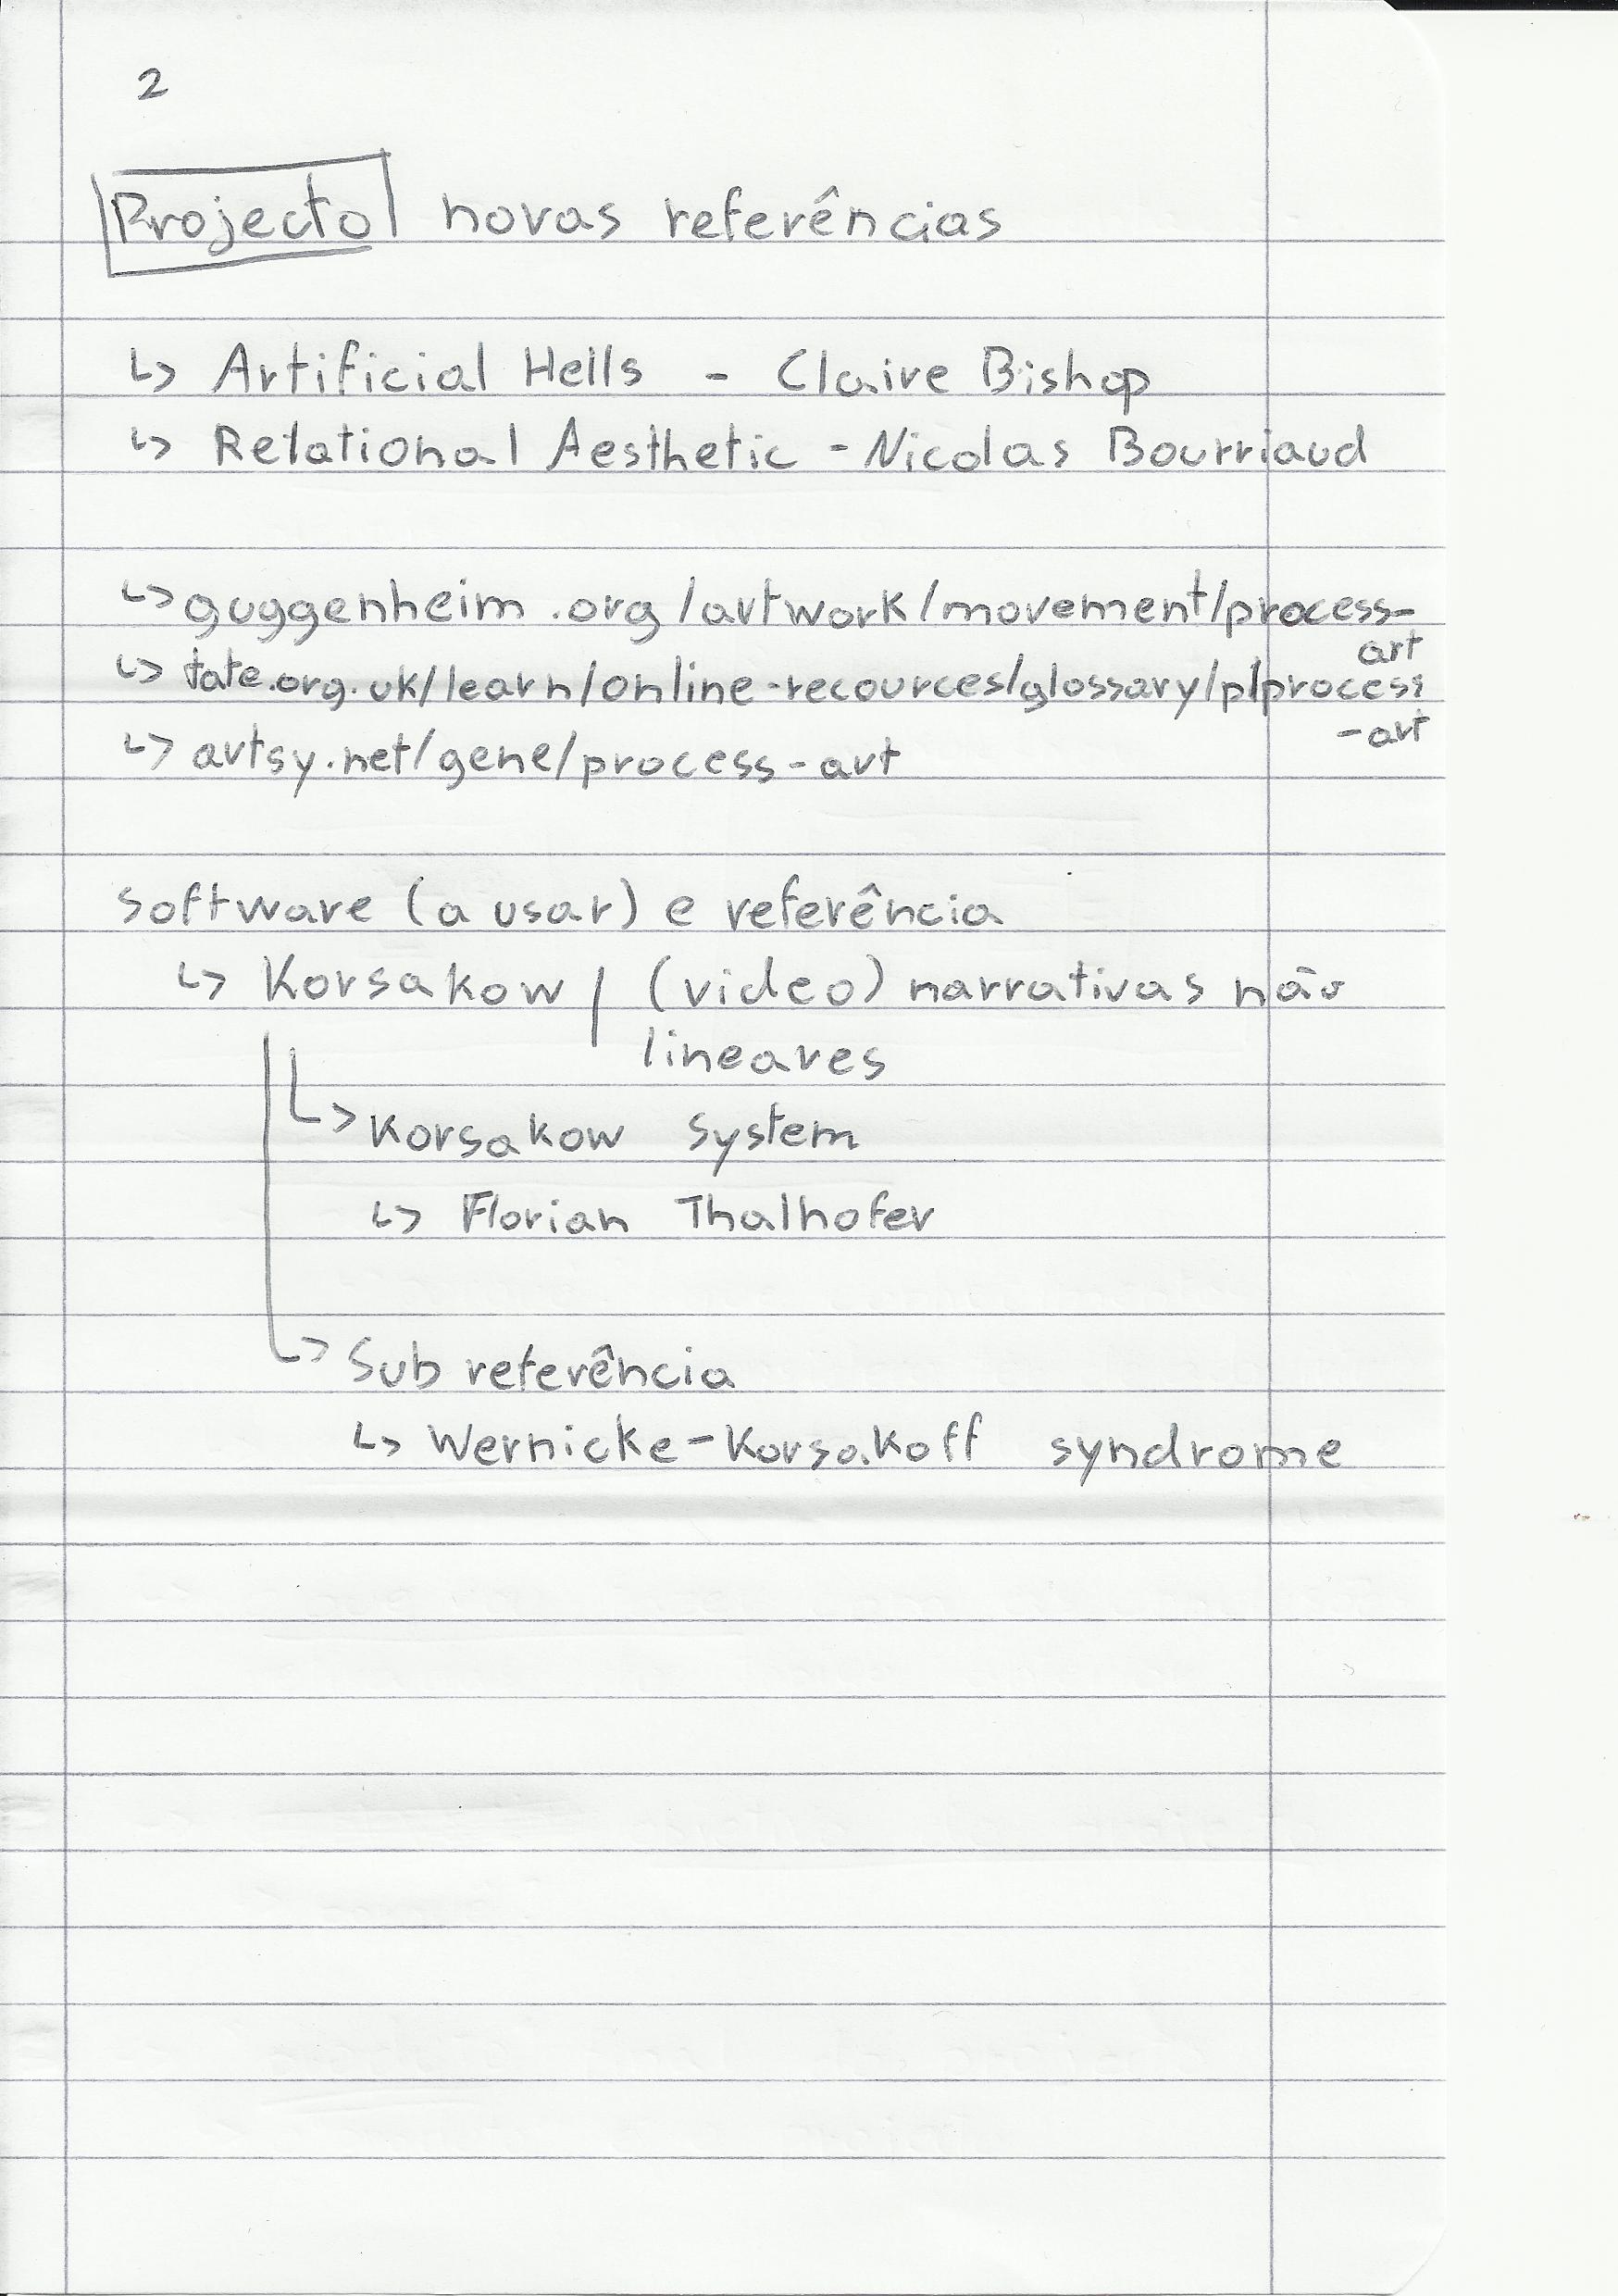 2
Projecto novas referências
↳ Artificial Hells - Claire Bishop
↳ Relational Aesthetic - Nicolas Bourriaud
↳ guggenheim.org/artwork/movement/process-
art
↳ tate.org.uk/learn/online-recources/glossary/p/process
-art
↳ artsy.net/gene/process-art
software (a usar) e referência
↳ Korsakow | (video) narrativas não
lineares
↳ Korsakow System
↳ Florian Thalhofer
↳ Sub referência
↳ Wernicke-Korsakoff syndrome